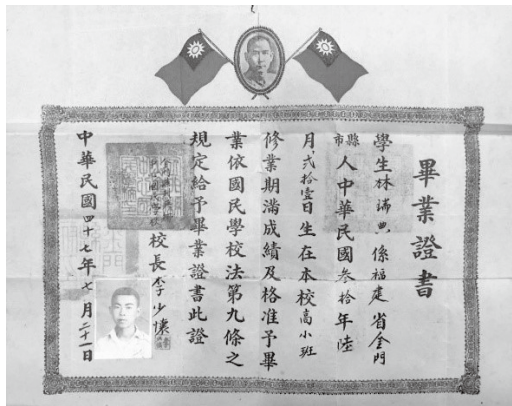 畢業證書
學生林瑞興係福建省金門
縣市人中華民國叁拾年陸
月弍拾壹日生在本校高小班
修業期滿成績及格准予畢
業依國民學校法第九條之
規定給予畢業證書此證
校長李少懷
中華民國四十七年七月二十一日